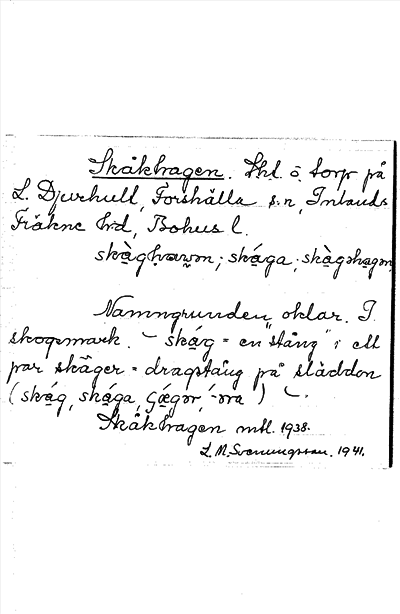 Skåkhagen. Hhl. o. torp på
L. Djurhult, Forshälla s:n, Inlands
Fräkne hrd, Bohus l.
skàghavən; skága; skàgəhagən
Namngrunden oklar. I
skogsmark. – skág = en "stång" i ett
par skäger = dragstång på slädden
(skág, skága, gǽgər, -əra) –.
Skåkhagen mtl. 1938.
L. M. Svenungsson. 1941.